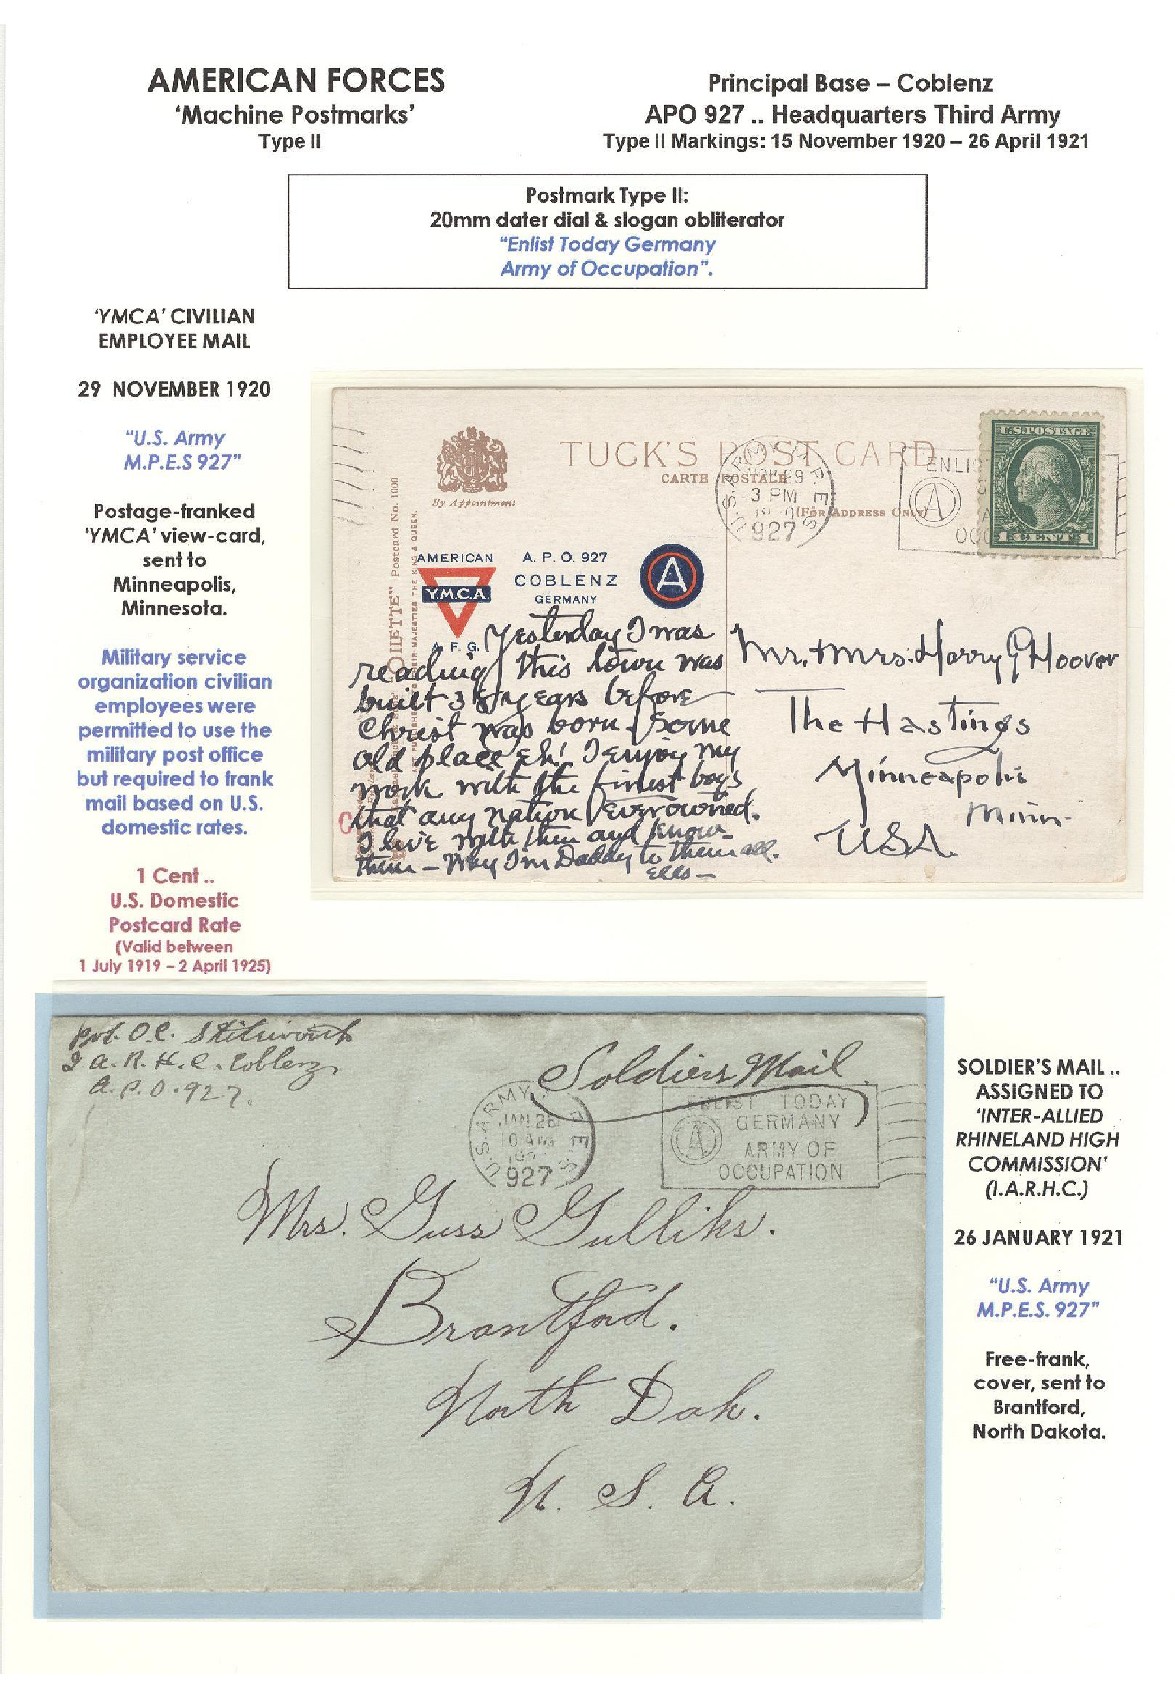 AMERICAN FORCES
'Machine Postmarks'
Type II
Principal Base – Coblenz
APO 927 .. Headquarters Third Army
Type II Markings: 15 November 1920 – 26 April 1921
Postmark Type II:
20mm dater dial & slogan obliterator
"Enlist Today Germany
Army of Occupation".
'YMCA' CIVILIAN
EMPLOYEE MAIL
29 NOVEMBER 1920
"U.S. Army
M.P.E.S 927"
Postage-franked
'YMCA' view-card,
sent to
Minneapolis,
Minnesota.
Military service
organization civilian
employees were
permitted to use the
military post office
but required to frank
mail based on U.S.
domestic rates.
1 Cent ..
U.S. Domestic
Postcard Rate
(Valid between
1 July 1919 – 2 April 1925)
TUCK'S POST CARD
CARTE POSTALE
(For Address Only)
By Appointment
Postcard No.
U.S. ARMY
3 PM
927
ENLI
A
U.S. POSTAGE
1 CENT 1
AMERICAN
Y.M.C.A.
A. F. G.
A. P. O. 927
COBLENZ
GERMANY
A
Yesterday I was
reading this town was
built 38 years before
Christ was born. Some
old place eh! I enjoy my
work with the finest boys
that any nation ever owned.
I live with them and know
them – Why I'm Daddy to them all.
Mr. Mrs. Harry G Hoover
The Hastings
Minneapolis
Minn.
USA.
Pvt. O.C.
I. A. R. H. C. Coblenz,
A. P. O. 927.
Soldiers Mail
U.S. ARMY
JAN 26
927
ENLIST TODAY
GERMANY
A
ARMY OF
OCCUPATION
Mrs. Guss Gulliks.
Brantford.
North Dak.
U. S. A.
SOLDIER'S MAIL ..
ASSIGNED TO
'INTER-ALLIED
RHINELAND HIGH
COMMISSION'
(I.A.R.H.C.)
26 JANUARY 1921
"U.S. Army
M.P.E.S. 927"
Free-frank,
cover, sent to
Brantford,
North Dakota.